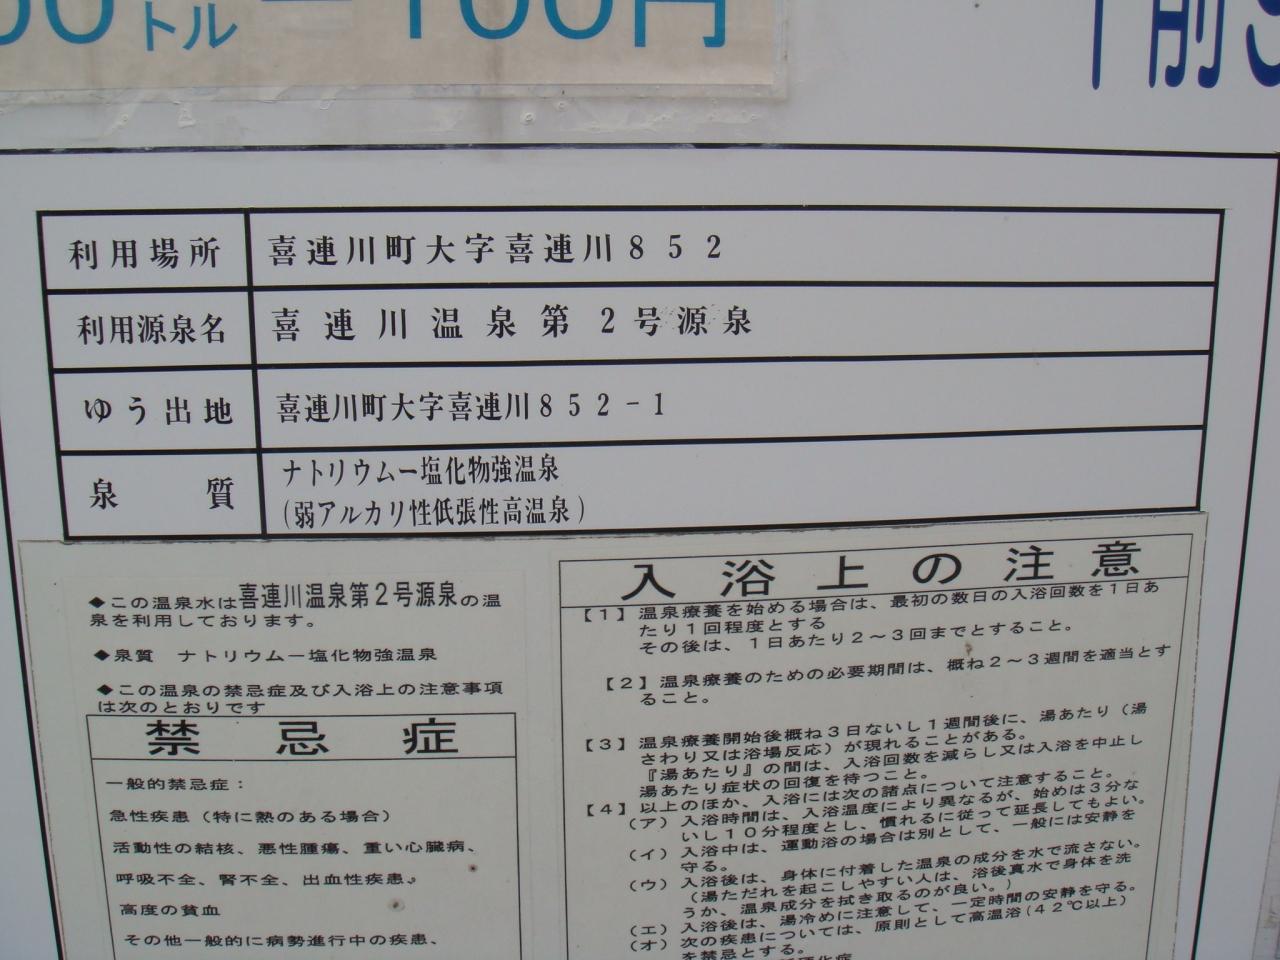 トル
100円
前
利用場所 喜連川町大字喜連川852
利用源泉名 喜連川温泉第2号源泉
ゆう出地 喜連川町大字喜連川852-1
泉質 ナトリウムー塩化物強温泉
(弱アルカリ性低張性高温泉)
◆この温泉水は喜連川温泉第2号源泉の温
泉を利用しております。
◆泉質 ナトリウムー塩化物強温泉
◆この温泉の禁忌症及び入浴上の注意事項
は次のとおりです
禁忌症
一般的禁忌症:
急性疾患(特に熱のある場合)
活動性の結核、悪性腫瘍、重い心臓病、
呼吸不全、腎不全、出血性疾患。
高度の貧血
その他一般的に病勢進行中の疾患、
入浴上の注意
【1】温泉療養を始める場合は、最初の数日の入浴回数を1日あ
たり1回程度とする
その後は、1日あたり2〜3回までとすること。
【2】温泉療養のための必要期間は、概ね2〜3週間を適当とす
ること。
【3】温泉療養開始後概ね3日ないし1週間後に、湯あたり(湯
さわり又は浴場反応)が現れることがある。
『湯あたり』の間は、入浴回数を減らし又は入浴を中止し
湯あたり症状の回復を待つこと。
【4】以上のほか、入浴には次の諸点について注意すること。
(ア)入浴時間は、入浴温度により異なるが、始めは3分な
いし10分程度とし、慣れるに従って延長してもよい。
(イ)入浴中は、運動浴の場合は別として、一般には安静を
守る。
(ウ)入浴後は、身体に付着した温泉の成分を水で流さない。
(湯ただれを起こしやすい人は、浴後真水で身体を洗
うか、温泉成分を拭き取るのが良い。)
(エ)入浴後は、湯冷めに注意して、一定時間の安静を守る。
(オ)次の疾患については、原則として高温浴(42℃以上)
を禁忌とする。